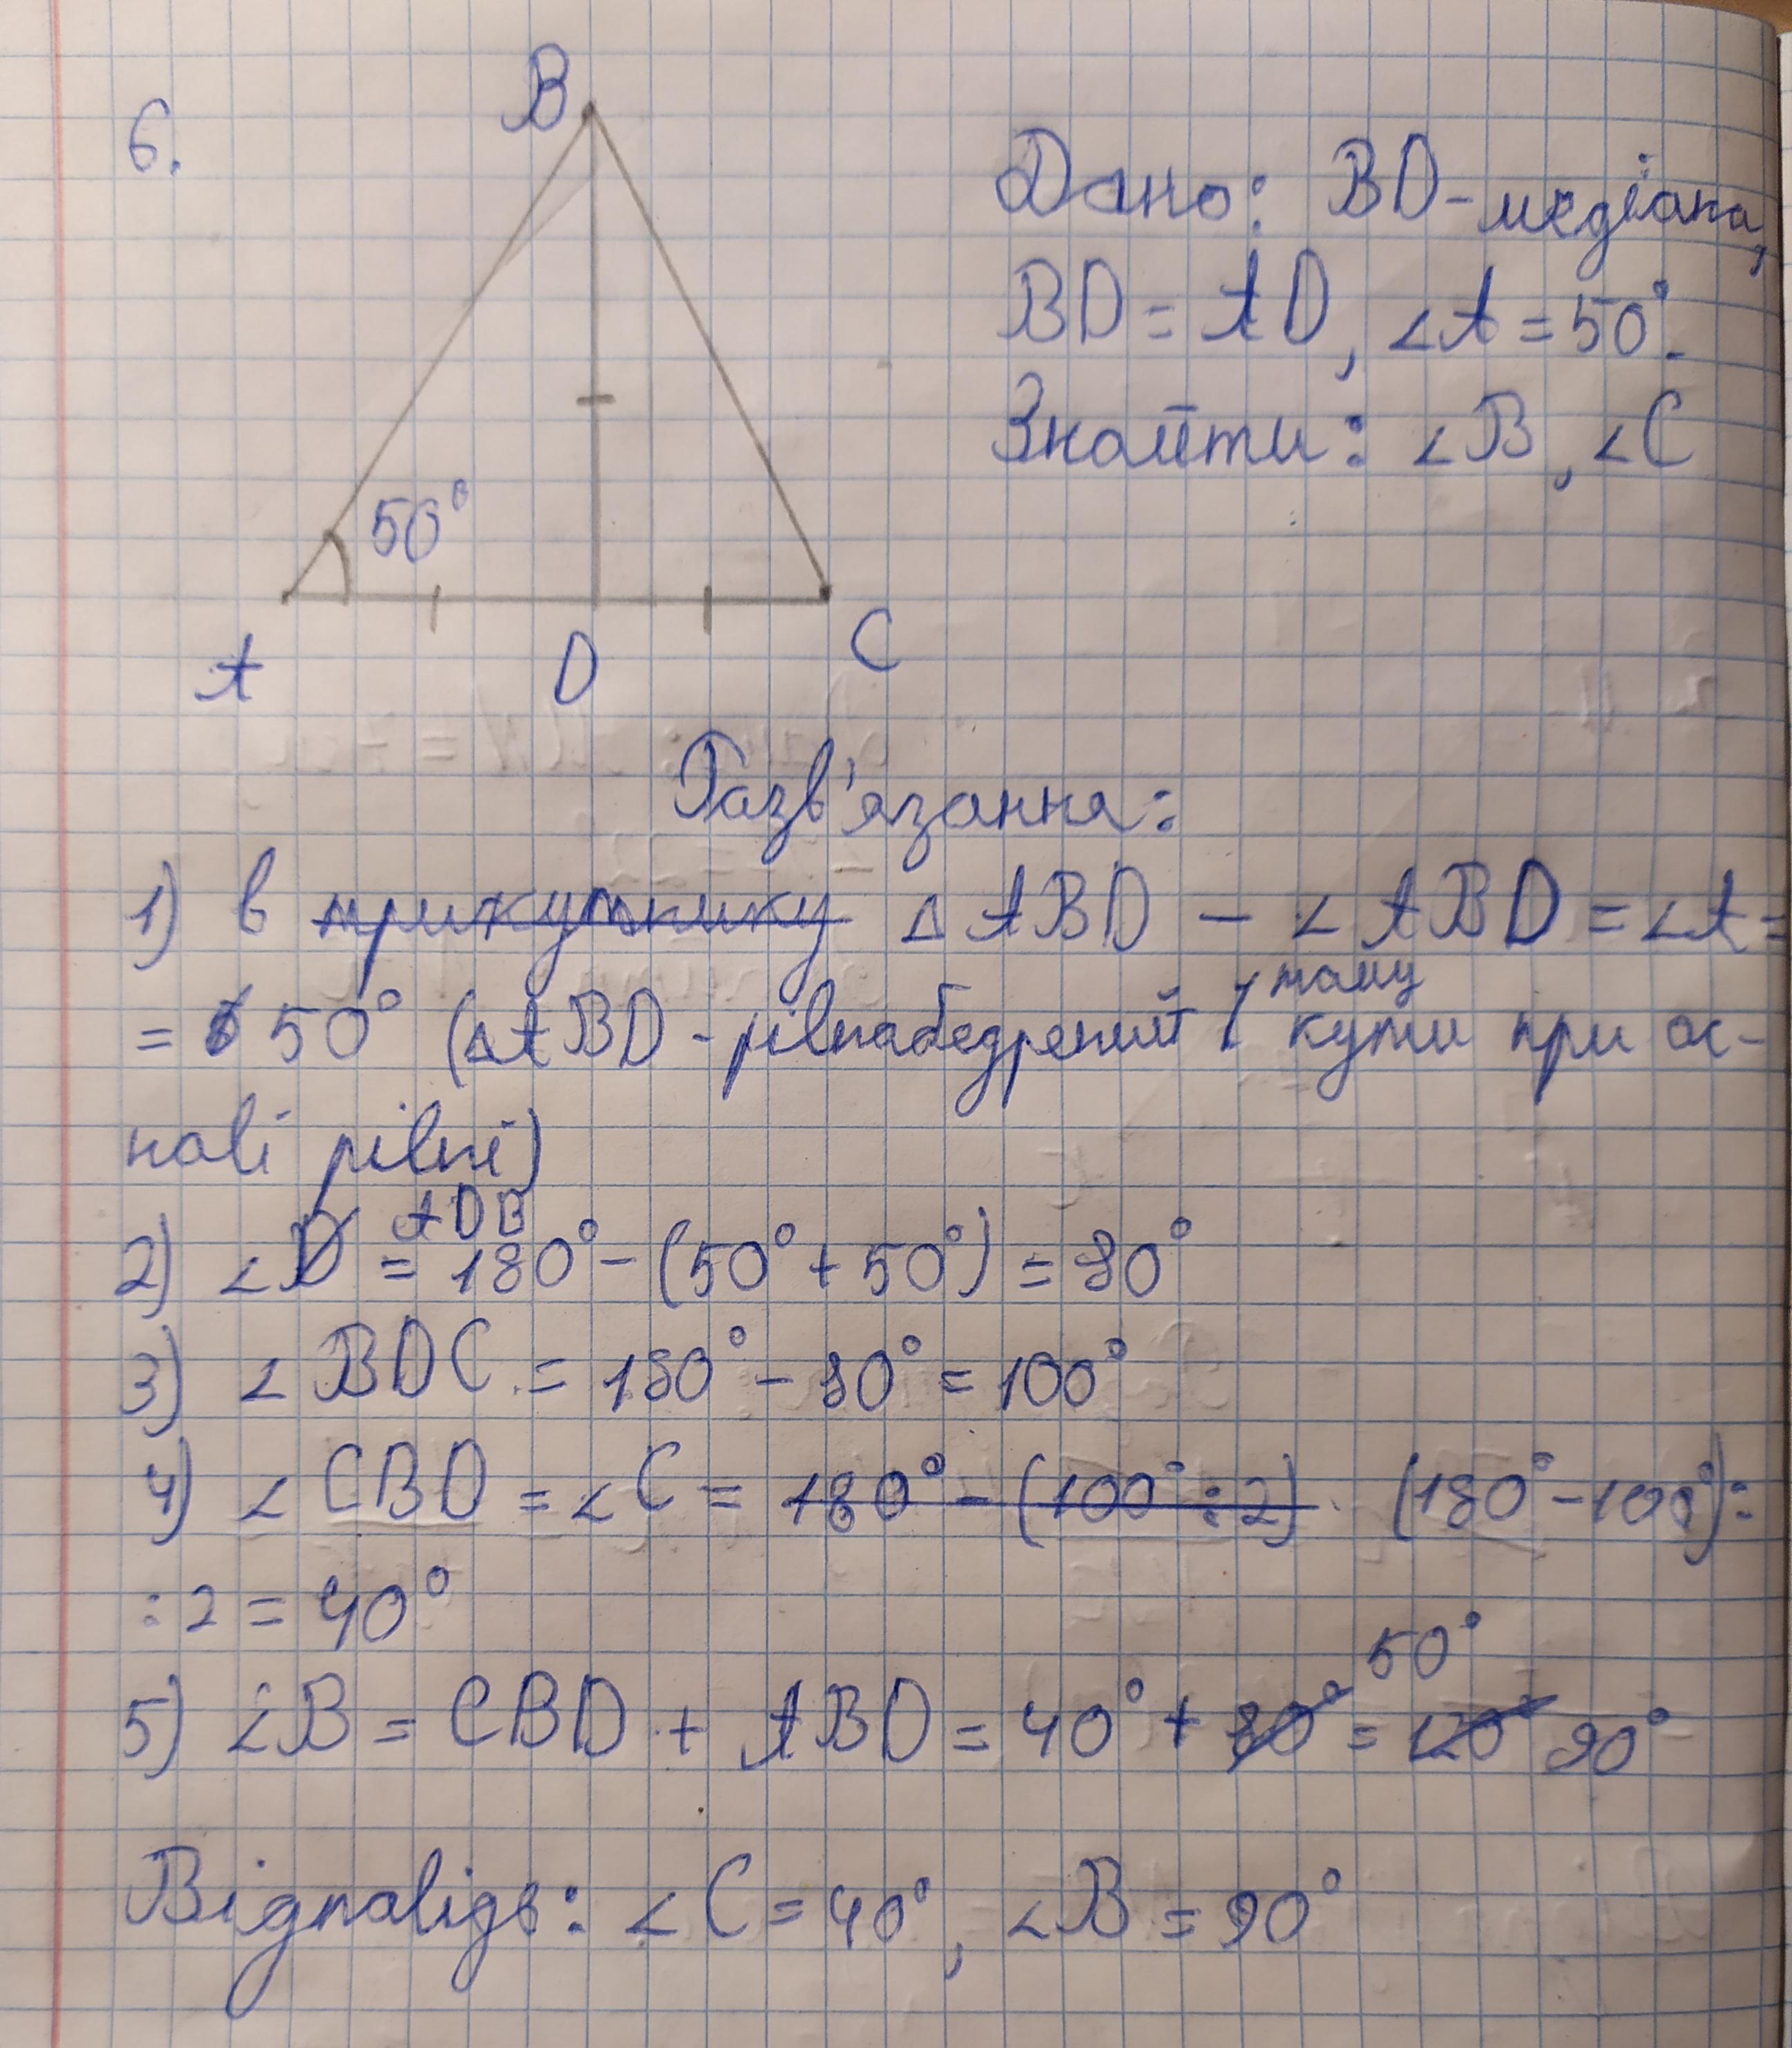 6.
B
Дано: BD - медіана,
BD = AD, ∠A = 50°.
Знайти: ∠B, ∠C
50°
A D C
Розв'язання:
1) в трикутнику △ABD - ∠ABD = ∠A =
= 50° (△ABD - рівнобедрений, тому кути при ос-
нові рівні)
2) ∠D ADB = 180° - (50° + 50°) = 80°
3) ∠BDC = 180° - 80° = 100°
4) ∠CBD = ∠C = 180° - (100° : 2) (180° - 100°) :
: 2 = 40°
5) ∠B = CBD + ABD = 40° + 80° 50° = 120° 90°
Відповідь: ∠C = 40°, ∠B = 90°